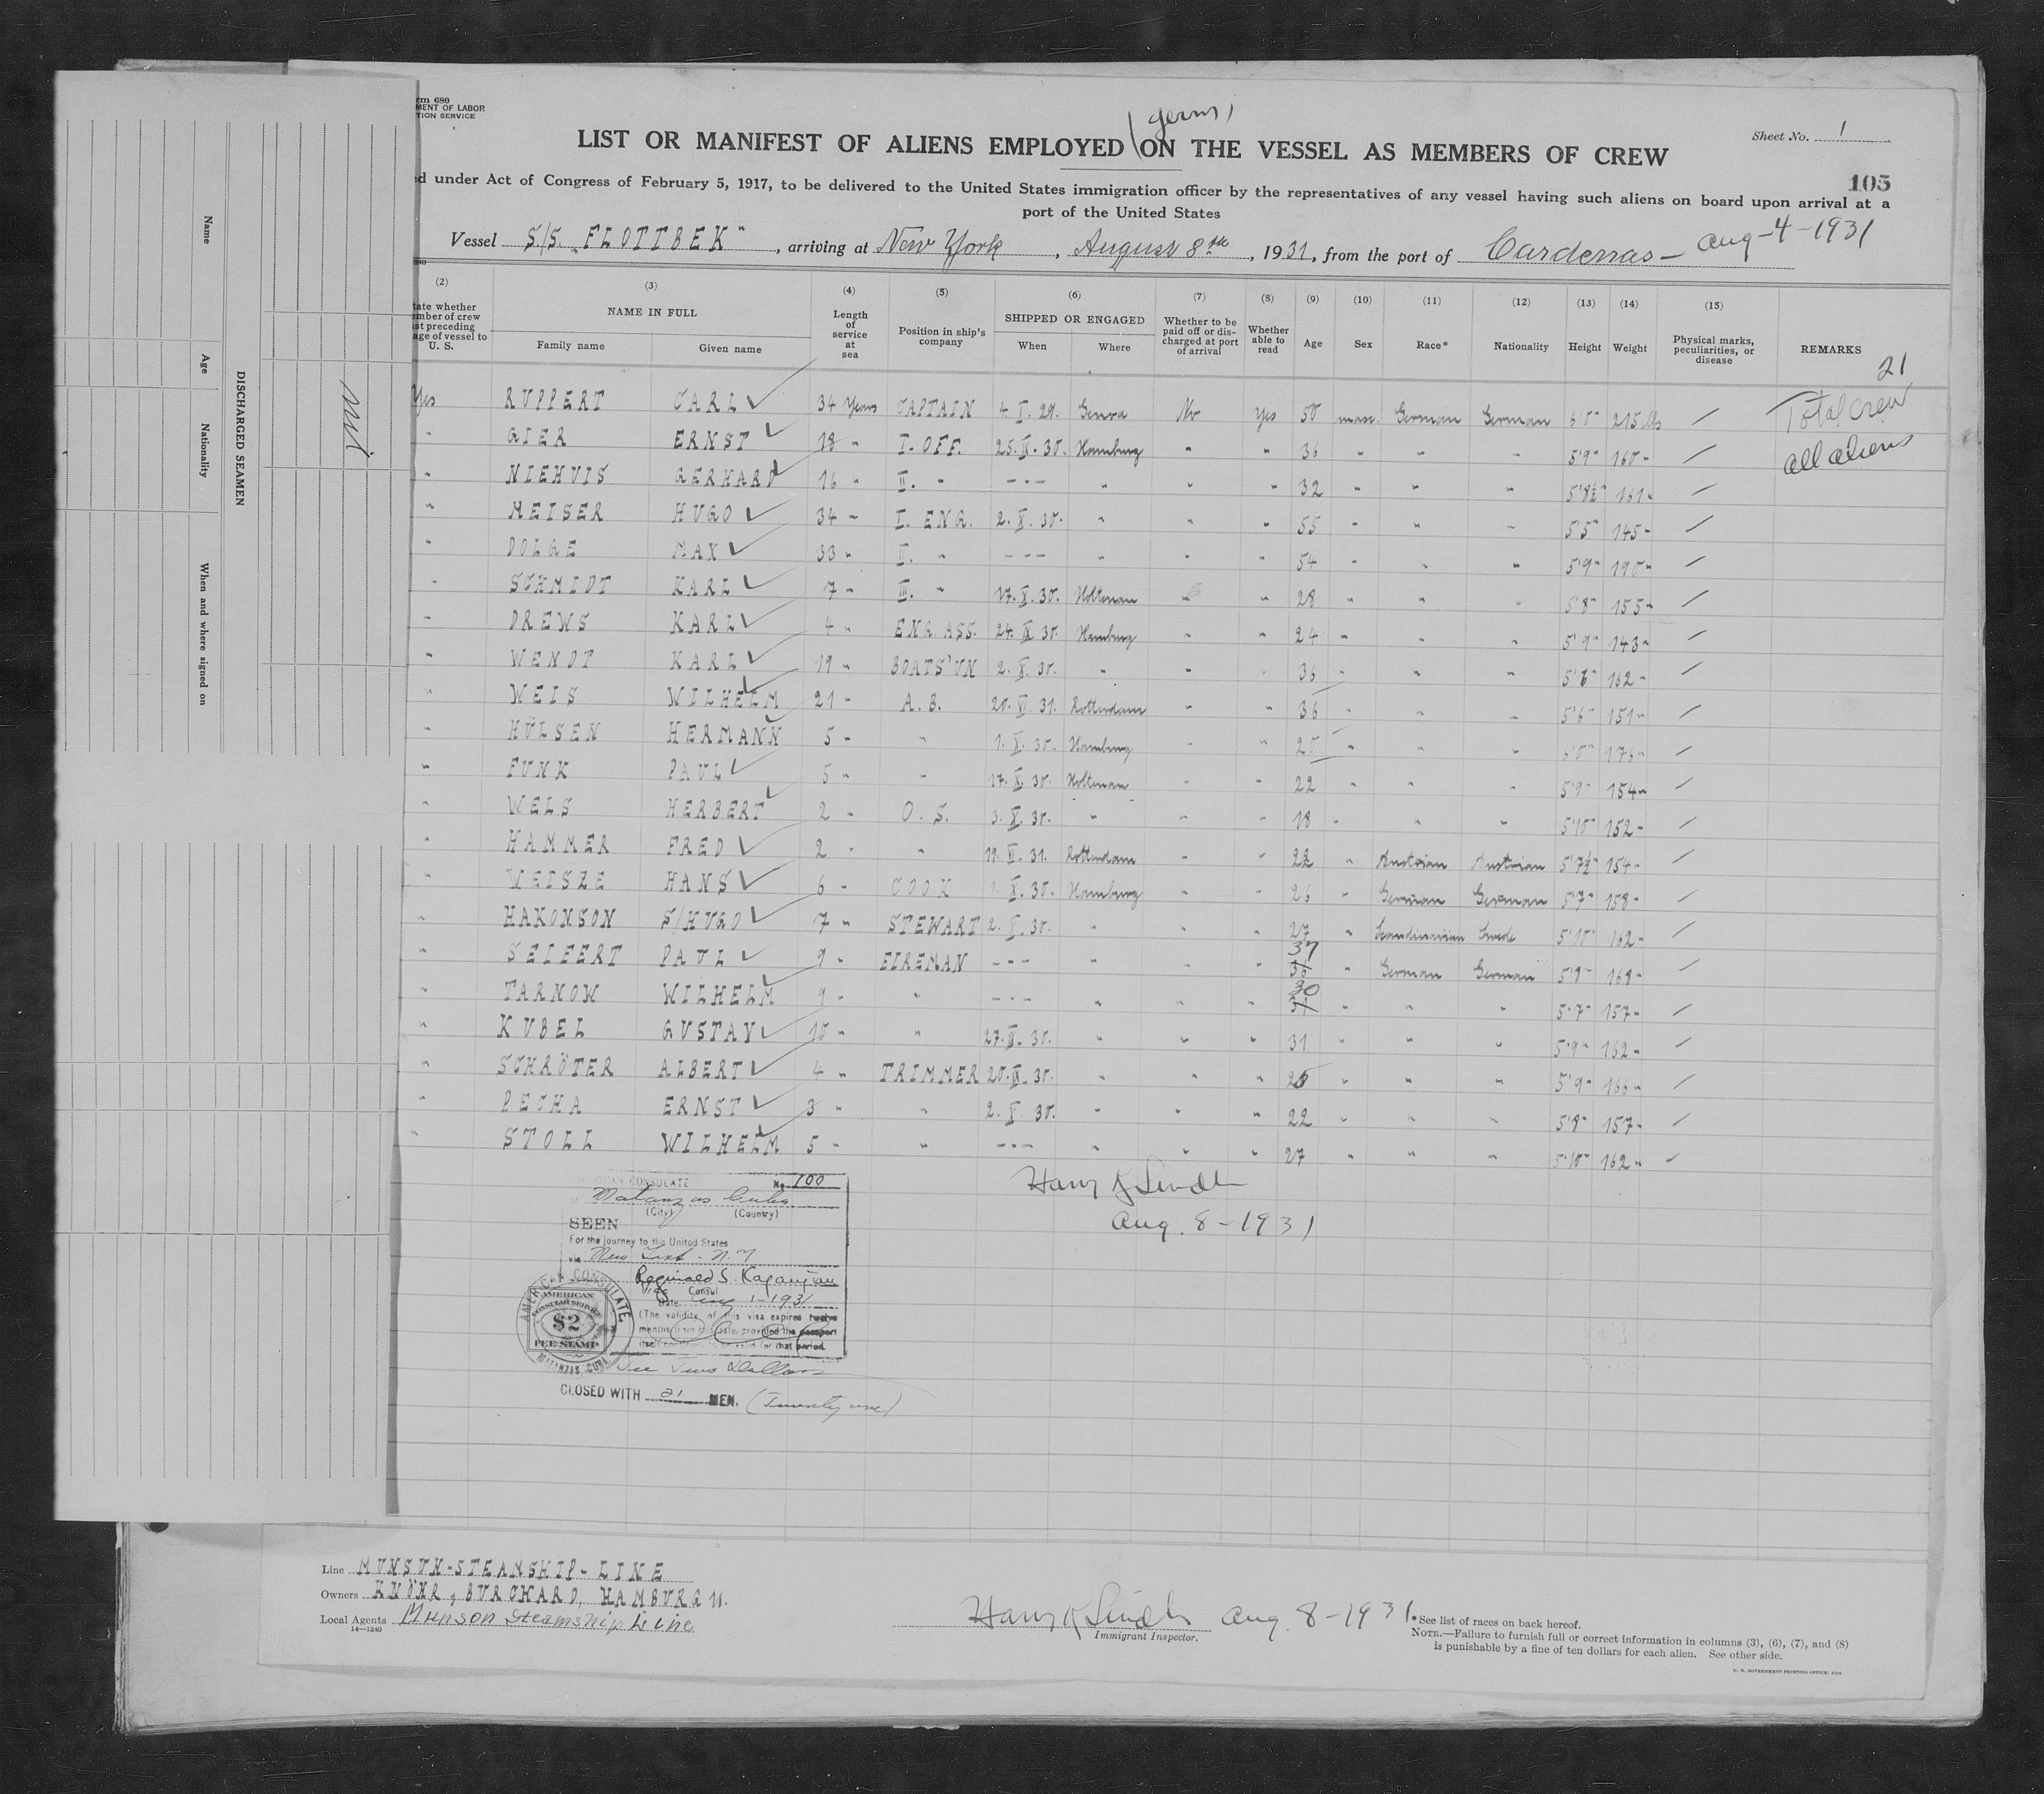 rm 680
MENT OF LABOR
TION SERVICE
(germ)
LIST OR MANIFEST OF ALIENS EMPLOYED ON THE VESSEL AS MEMBERS OF CREW
Sheet No. 1
105
d under Act of Congress of February 5, 1917, to be delivered to the United States immigration officer by the representatives of any vessel having such aliens on board upon arrival at a
port of the United States
Vessel S/S "FLOTTBEK", arriving at New York, August 8th, 1931, from the port of Cardenas - Aug-4-1931
(2) (3) (4) (5) (6) (7) (8) (9) (10) (11) (12) (13) (14) (15)
tate whether
mber of crew
st preceding
age of vessel to
U. S.
NAME IN FULL
Family name
Given name
Length
of
service
at
sea
Position in ship's
company
SHIPPED OR ENGAGED
When
Where
Whether to be
paid off or dis-
charged at port
of arrival
Whether
able to
read
Age
Sex
Race*
Nationality
Height
Weight
Physical marks,
peculiarities, or
disease
REMARKS
21
Total crew
all aliens
Yes RUPPERT CARL 34 Years CAPTAIN 4. I. 29. Genoa No Yes 50 masc. German German 6'0" 215 lbs /
" GIER ERNST 18 " I. OFF. 25. IX. 30. Hamburg " " 36 " " " 5'9" 160 " /
" NIEHUIS GERHARD 16 " II. " --- " " " 32 " " " 5'8½" 161 " /
" MEISER HUGO 34 " I. ENG. 2. X. 30. " " " 55 " " " 5'5" 145 " /
" DOLGE MAX 33 " II. " --- " " " 54 " " " 5'9" 190 " /
" SCHMIDT KARL 7 " III. " 17. X. 30. Holtenau " " 28 " " " 5'8" 155 " /
" DREWS KARL 4 " ENG. ASS. 24. IX 30. Hamburg " " 24 " " " 5'9" 143 " /
" WENDT KARL 19 " BOATS'UN 2. X. 30. " " " 36 " " " 5'6" 162 " /
" WEIS WILHELM 21 " A. B. 20. VI. 31. Rotterdam " " 36 " " " 5'6" 151 " /
" HÜLSEN HERMANN 5 " " 1. X. 30. Hamburg " " 20 " " " 6'0" 176 " /
" FUNK PAUL 5 " " 17. X. 30. Holtenau " " 22 " " " 5'9" 154 " /
" WELS HERBERT 2 " O. S. 3. X. 30. " " " 18 " " " 5'10" 152 " /
" HAMMER FRED 2 " " 19. VI. 31. Rotterdam " " 22 " Austrian Austrian 5'7½" 154 " /
" WEISZE HANS 6 " COOK 1. X. 30. Hamburg " " 26 " German German 5'7" 158 " /
" HAKONSON S/HUGO 7 " STEWART 2. X. 30. " " " 27 " Scandinavian Swede 5'10" 162 " /
" SEIFERT PAUL 9 " FIREMAN --- " " " 37 36 " German German 5'8" 168 " /
" TARNOW WILHELM 9 " " --- " " " 30 31 " " " 5'7" 157 " /
" KUBEL GUSTAV 10 " " 27. IX. 30. " " " 31 " " " 5'9" 162 " /
" SCHRÖTER ALBERT 4 " TRIMMER 20. IX. 30. " " " 25 " " " 5'9" 166 " /
" PECHA ERNST 3 " " 2. X. 30. " " " 22 " " " 5'8" 157 " /
" STOLL WILHELM 5 " " --- " " " 27 " " " 5'10" 162 " /
AMERICAN CONSULATE No 100
Matanzas Cuba
(City) (Country)
SEEN
For the journey to the United States
via New York - N.Y
Reginald S. Kazanjian
Vice Consul
Date Aug 1-1931
(The validity of this visa expires twelve
months from this date, provided the passport
itself continues to be valid for that period.
AMERICAN CONSULATE
AMERICAN
CONSULAR SERVICE
$2
FEE STAMP
MATANZAS, CUBA
Fee Two Dollars
CLOSED WITH 21 MEN. (Twenty one)
Harry K Lindh
Aug. 8-1931
Line MUNSON-STEAMSHIP-LINE
Owners KNÖHR, BURCHARD, HAMBURG
Local Agents Munson Steamship Line
14—1240
Harry K Lindh Aug. 8-1931
Immigrant Inspector.
*See list of races on back hereof.
NOTE.—Failure to furnish full or correct information in columns (3), (6), (7), and (8)
is punishable by a fine of ten dollars for each alien. See other side.
U. S. GOVERNMENT PRINTING OFFICE
DISCHARGED SEAMEN
Name
Age
Nationality
When and where signed on